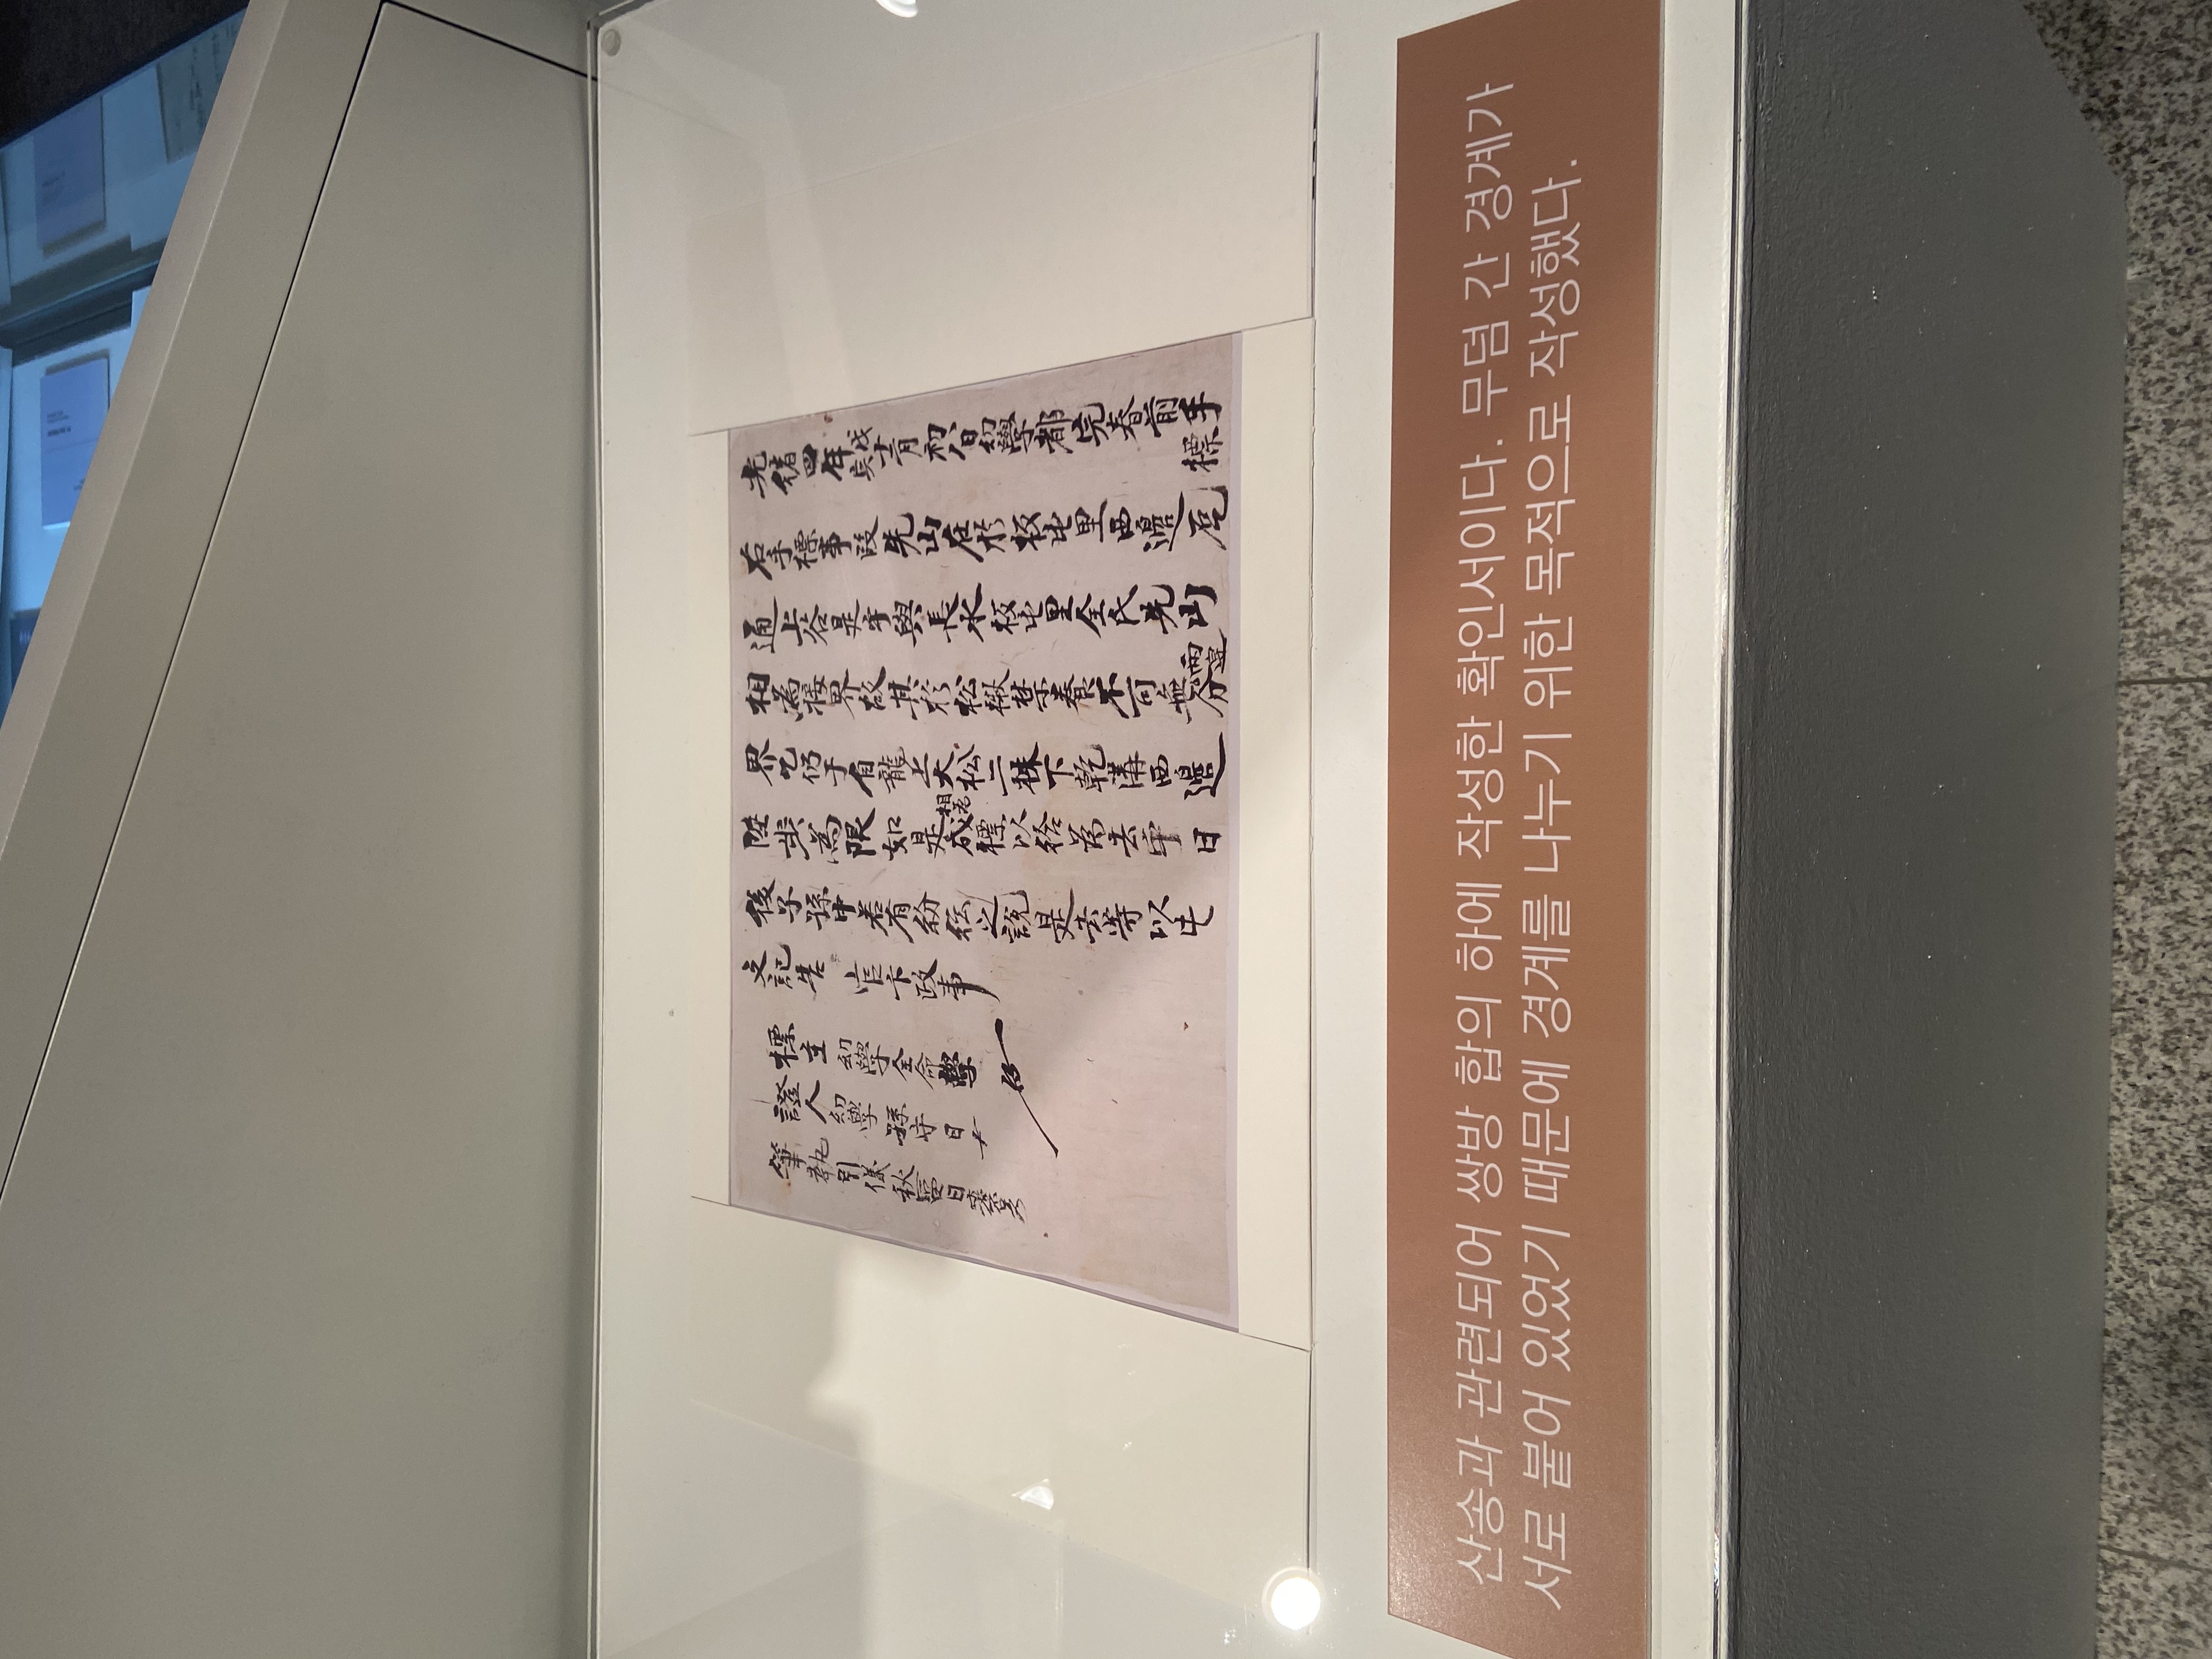 光緖四年戊寅十二月初八日幼學都完春前手標
右手標事段先山在於板屯里西邊卮
通上谷是乎與長水板屯里全氏先山
相為接界故其於松楸禁養不可無兩邊分
界乞仍于自龍上大松二株下乾溝西邊
陸步為限如是相考成標以給為去乎日
後子孫中若有紛紜之說是去等以此
文記告官卞政事
標主幼學全命學
證人幼學孫守日
筆執引儀秋富日
산송과 관련되어 쌍방 합의 하에 작성한 확인서이다. 무덤 간 경계가
서로 붙어 있었기 때문에 경계를 나누기 위한 목적으로 작성했다.